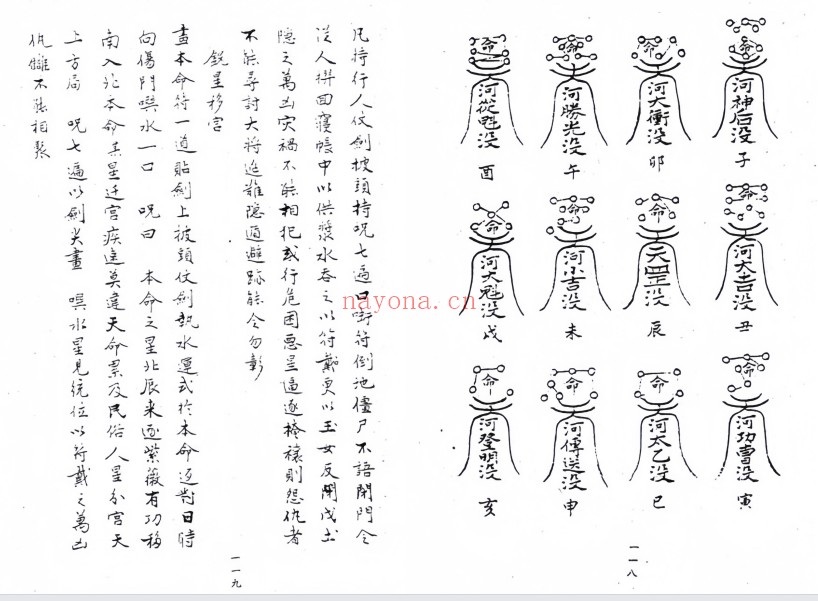 命
河神后没
子
命
河大衝没
卯
命
河勝光没
午
命
河從魁没
酉
命
河大吉没
丑
命
天罡没
辰
命
河小吉没
未
命
河大魁没
戌
命
河功曹没
寅
命
河太乙没
巳
命
河傳送没
申
命
河登明没
亥
一一八
凡持行人仗劍披頭持呪七遍口啣符倒池僵尸不語閉門令
從人拼回寢帳中以供漿水吞之以符戴更以玉女反閉戊土
隱之萬凶灾禍不能相犯或行危困惡星逼逐掩禳則怨仇者
不能尋討大將造難隱遁避跡能令勿彰
銳星移宮
畫本命符一道貼劍上披頭仗劍執水運式於本命返對日時
向傷門噀水一口 呪曰 本命之星北辰来逐紫薇有功移
南入北本命某星迁宮疾速莫違天命累及民俗人星分宮天
上方局 呪七遍以劍尖畫 噀水星見統位以符戴之萬凶
仇讎不能相聚
一一九
nayona.cn